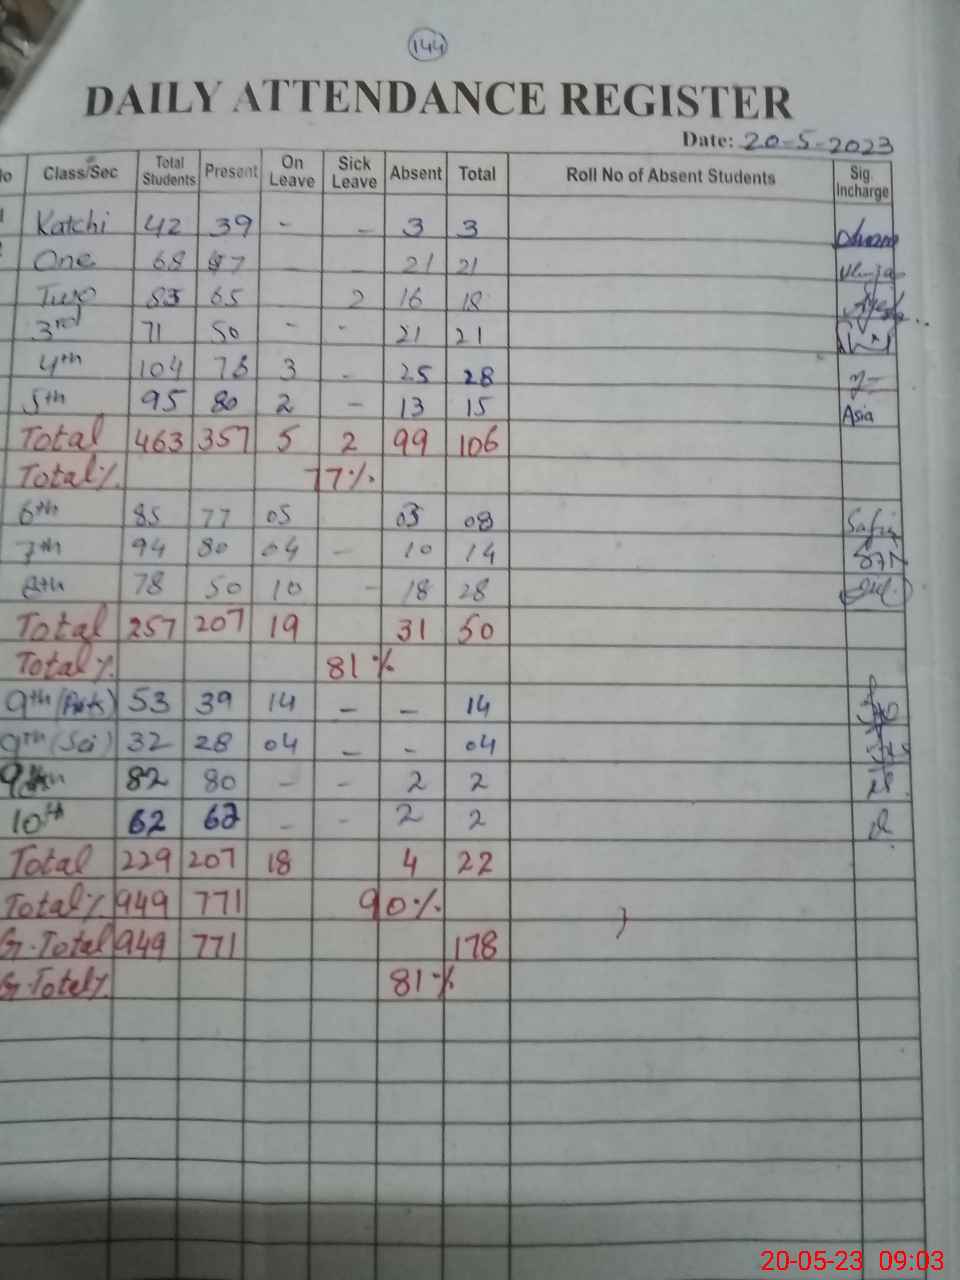 144
DAILY ATTENDANCE REGISTER
Date: 20-5-2023
Class/Sec Total Students Present On Leave Sick Leave Absent Total Roll No of Absent Students Sig. Incharge
Katchi 42 39 - - 3 3
One 68 47 21 21
Two 83 65 2 16 18
3rd 71 50 - - 21 21
4th 104 76 3 - 25 28
5th 95 80 2 - 13 15 Asia
Total 463 357 5 2 99 106
Total % 77%
6th 85 77 05 03 08
7th 94 80 04 - 10 14
8th 78 50 10 - 18 28
Total 257 207 19 31 50
Total % 81 %
9th (Arts) 53 39 14 - - 14
9th (Sci) 32 28 04 - - 04
9th 82 80 - - 2 2
10th 62 - - 2 2
Total 229 207 18 4 22
Total % 949 771 90%
G.Total 949 771 178
G.Total % 81 %
20-05-23 09:03